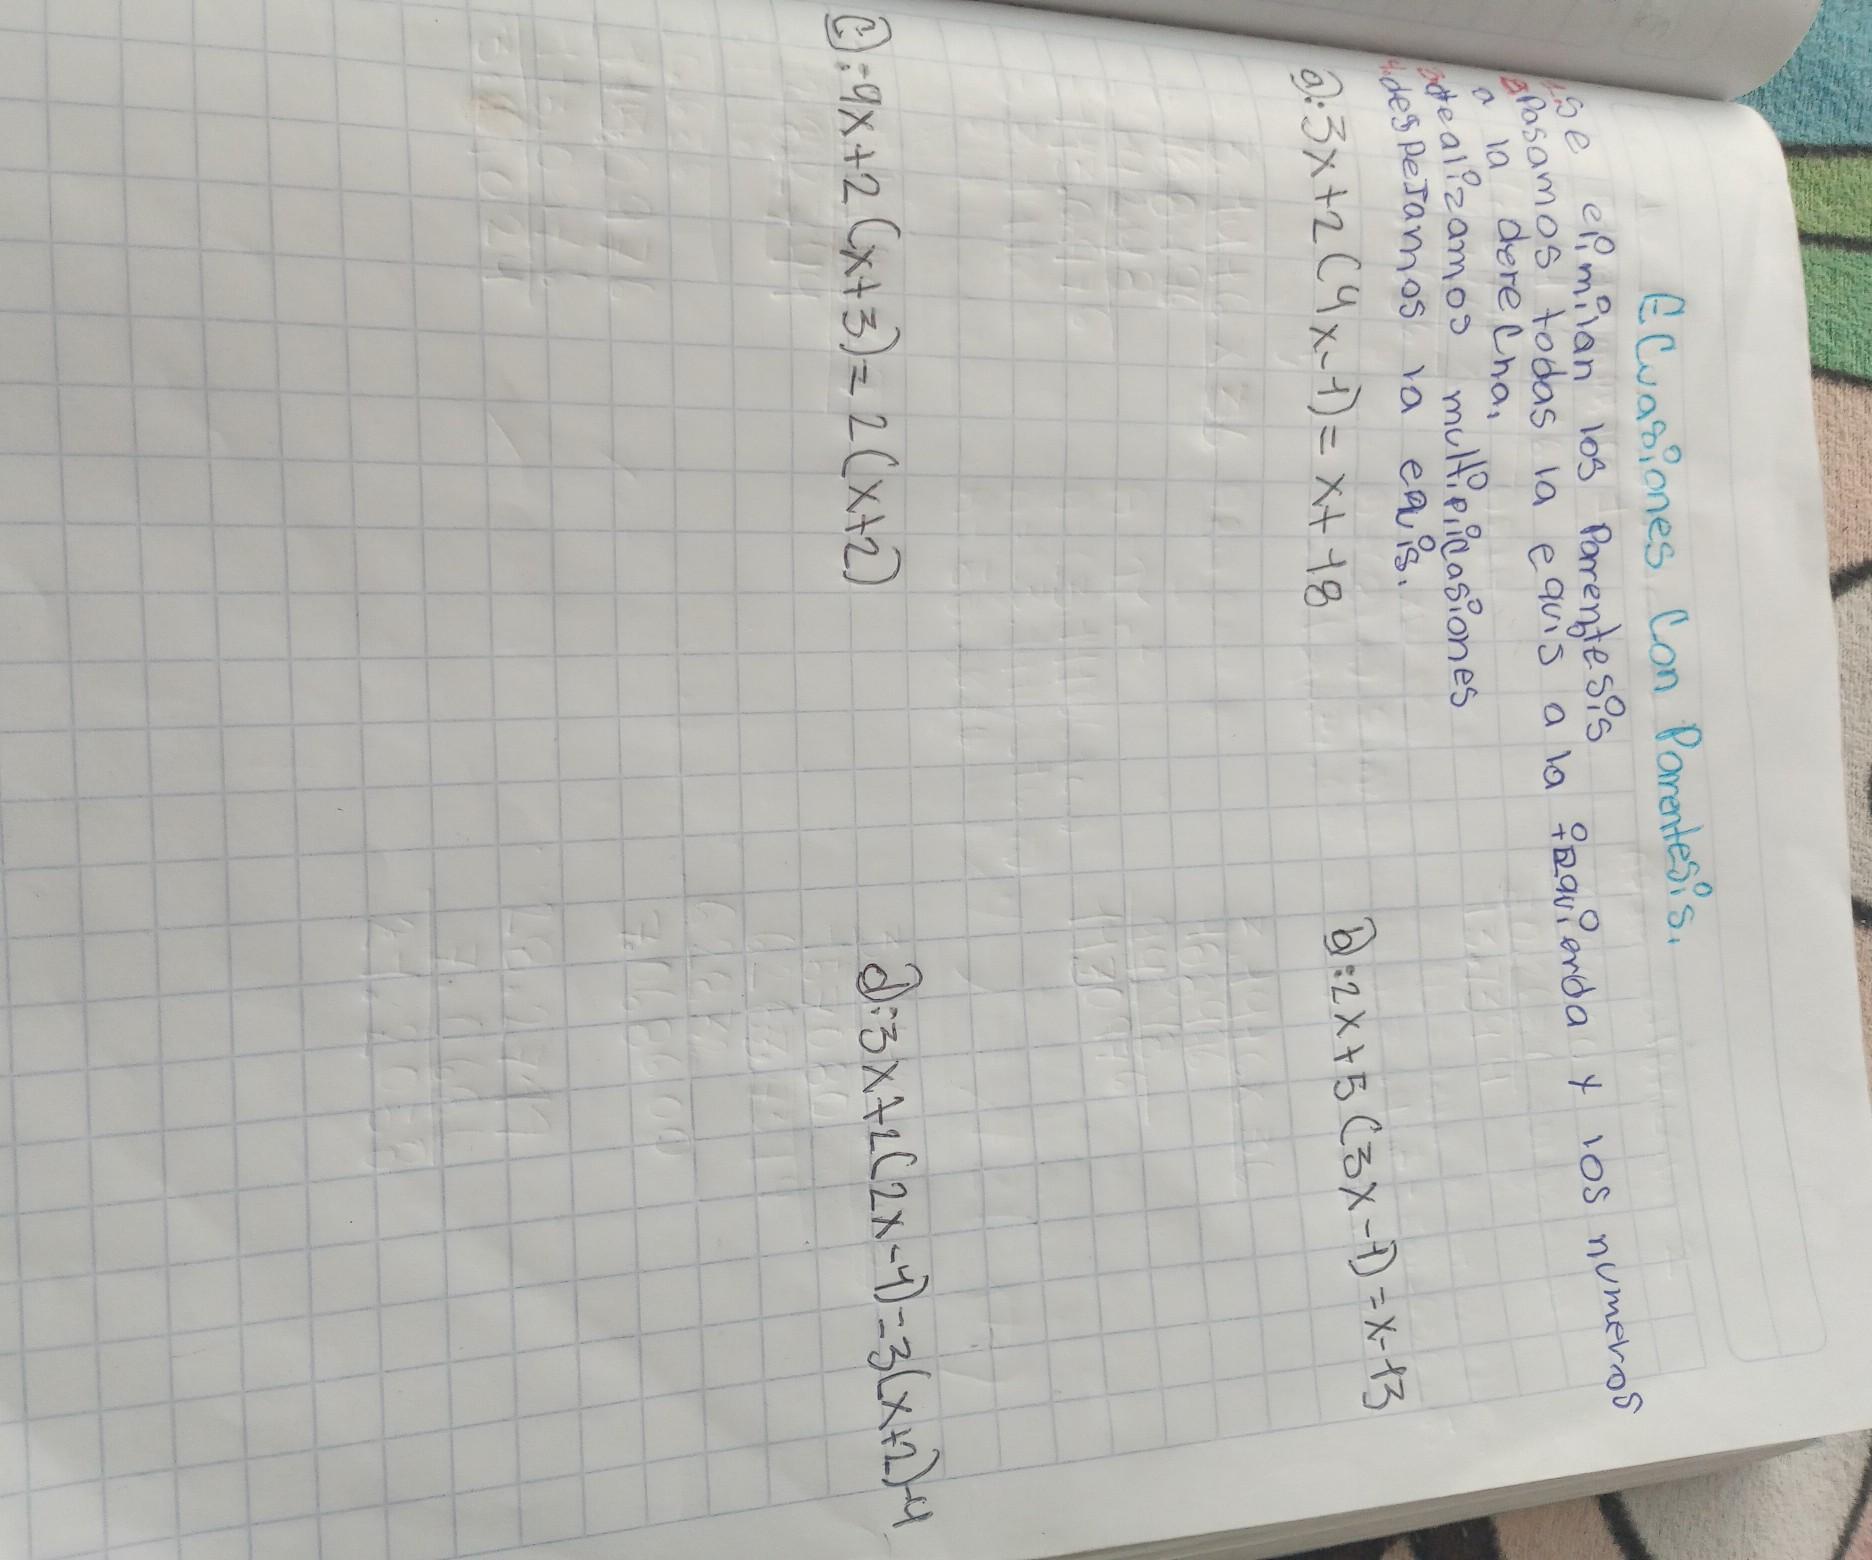 ECuasiones Con Parentesis.
1. Se eliminan los Parentesis
2. Pasamos todas la equis a la izquierda y los numeros
a la derecha.
3. realizamos multiplicasiones
4. despeJamos la equis.
a): 3x+2(4x-1)= x+18
b): 2x+5(3x-1)=x-13
c): 4x+2(x+3)= 2(x+2)
d): 3x+2(2x-4)=3(x+2)-4